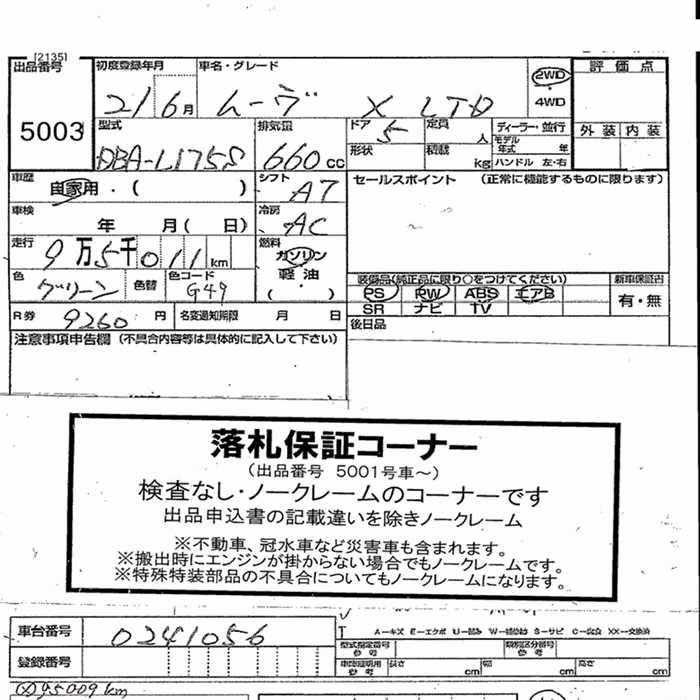 [2135]
出品番号 初度登録年月 車名・グレード 2WD 評価点
5003 21 6月 ムーヴ X LTD 4WD
型式 排気量 ドア 定員 ディーラー・並行 外装 内装
DBA-L175S 660cc 5 人 モデル年式 年
形状 積載 kg ハンドル 左・右
車歴 シフト セールスポイント (正常に機能するものに限ります)
自家用・( ) AT
車検 冷房
年 月( 日) AC
走行 燃料
9万5千011km ガソリン
色 色替 色コード 軽油 装備品(純正品に限り○をつけてください) 新車保証書
グリーン G49 ( ) PS PW ABS エアB 有・無
SR ナビ TV
R券 9260円 名変過期限 月 日 後日品
注意事項申告欄 (不具合内容等は具体的に記入して下さい)
落札保証コーナー
(出品番号 5001号車～)
検査なし・ノークレームのコーナーです
出品申込書の記載違いを除きノークレーム
※不動車、冠水車など災害車も含まれます。
※搬出時にエンジンが掛からない場合でもノークレームです。
※特殊特装部品の不具合についてもノークレームになります。
車台番号 0241056 A-キズ E-エクボ S-サビ XX-交換済
型式指定番号 参考 類別区分番号 参考
登録番号 長さ cm 幅 cm 高さ cm
95009km